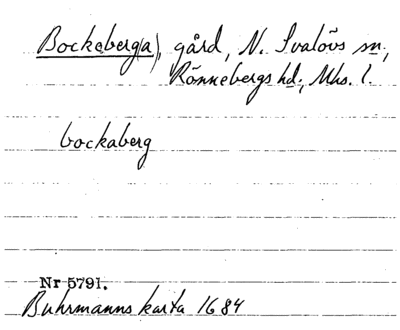 Bockeberg(a), gård, N. Svalövs sn,
Rönnebergs hd, Mhs. l.
bockaberg
Nr 5791.
Buhrmanns karta 1684